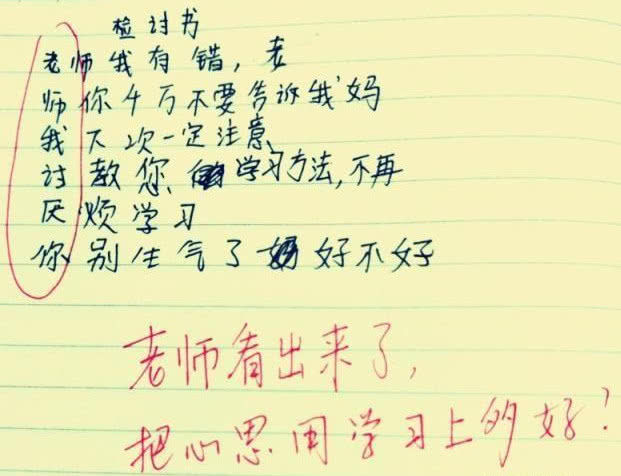 检讨书
老师我有错，老
师你千万不要告诉我妈
我下次一定注意、
讨教您、学习方法，不再
厌烦学习
你别生气了好不好
老师看出来了，
把心思用学习上多好！